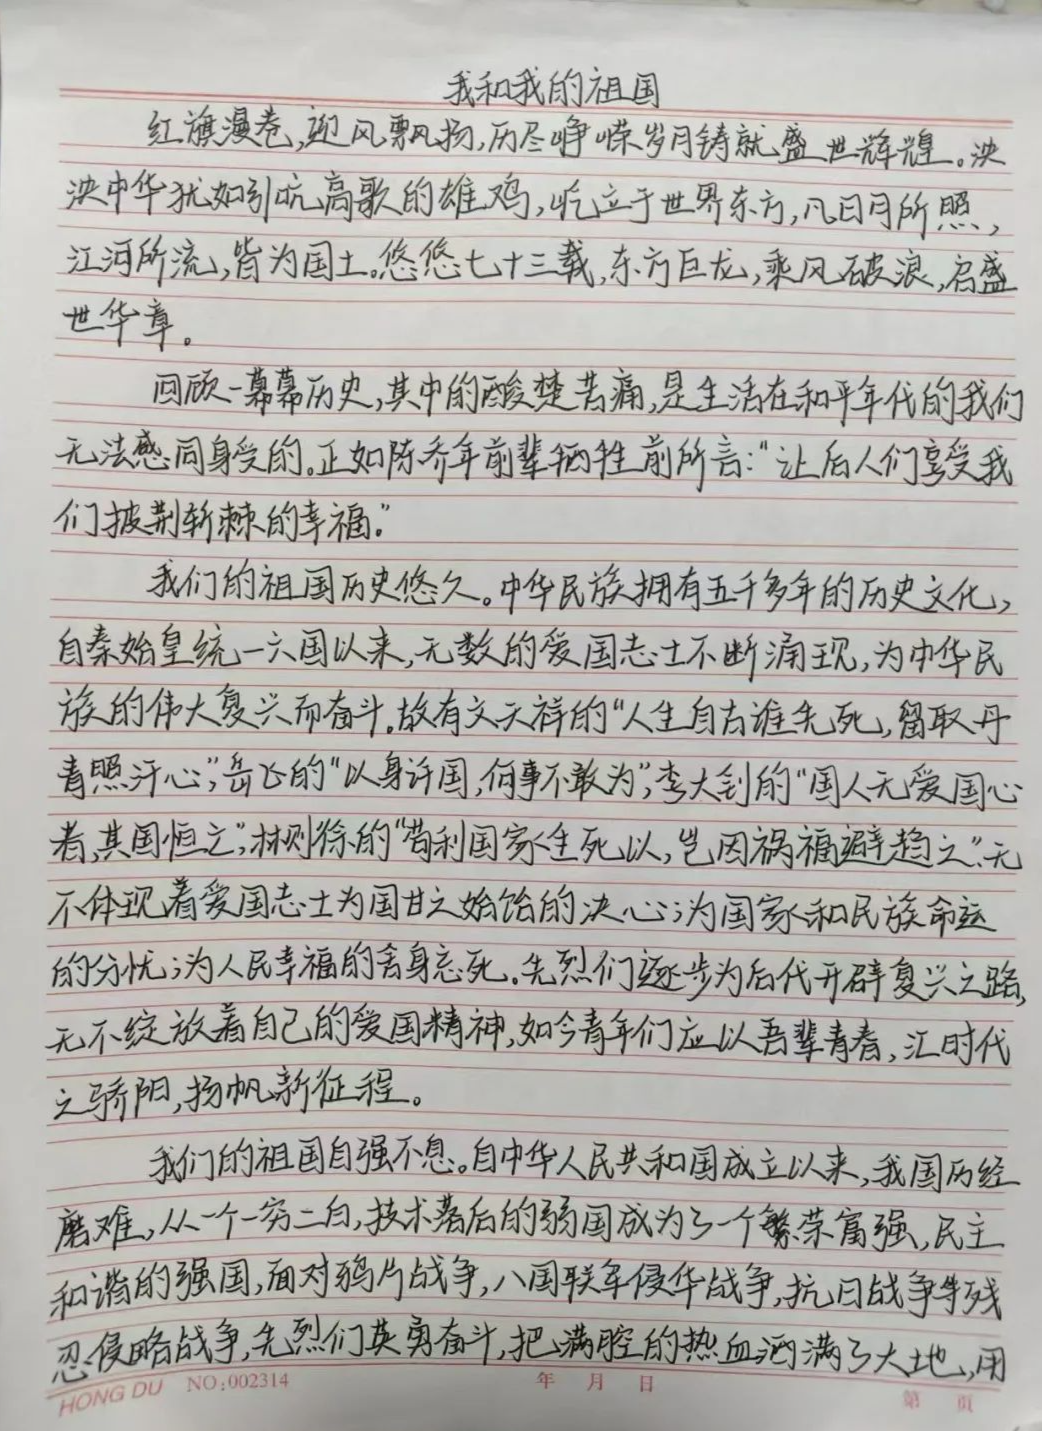 我和我的祖国
红旗漫卷,迎风飘扬,历尽峥嵘岁月铸就盛世辉煌。泱
泱中华犹如引吭高歌的雄鸡,屹立于世界东方,凡日月所照,
江河所流,皆为国土。悠悠七十三载,东方巨龙,乘风破浪,启盛
世华章。
回顾一幕幕历史,其中的酸楚苦痛,是生活在和平年代的我们
无法感同身受的。正如陈乔年前辈牺牲前所言:“让后人们享受我
们披荆斩棘的幸福。”
我们的祖国历史悠久。中华民族拥有五千多年的历史文化,
自秦始皇统一六国以来,无数的爱国志士不断涌现,为中华民
族的伟大复兴而奋斗。故有文天祥的“人生自古谁先死,留取丹
青照汗心”;岳飞的“以身许国,何事不敢为”;李大钊的“国人无爱国心
者,其国恒亡”;林则徐的“苟利国家生死以,岂因祸福避趋之”。无
不体现着爱国志士为国甘之始饴的决心;为国家和民族命运
的分忧;为人民幸福的舍身忘死。先烈们逐步为后代开辟复兴之路,
无不绽放着自己的爱国精神,如今青年们应以吾辈青春,汇时代
之骄阳,扬帆新征程。
我们的祖国自强不息。自中华人民共和国成立以来,我国历经
磨难,从一个一穷二白,技术落后的弱国成为了一个繁荣富强,民主
和谐的强国,面对鸦片战争,八国联军侵华战争,抗日战争等残
忍侵略战争,先烈们英勇奋斗,把满腔的热血洒满了大地,用
HONG DU NO:002314 年 月 日 第 页